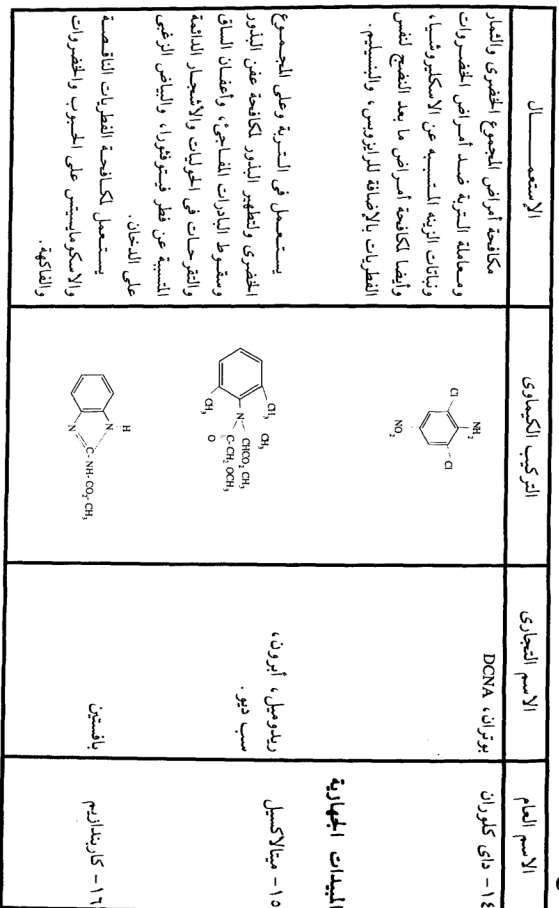 الاسم العام
الاسم التجارى
التركيب الكيماوى
الإستعمـــــــال
١٤- داى كلوران
بوتران، DCNA
NH₂
Cl
Cl
NO₂
مكافحة أمراض المجموع الخضرى والثمار
ومعاملة التربة ضد أمـراض الخضـروات
ونباتات الزينه المتسببه عن الاسكليروشيا،
وأيضا لمكافحة أمـراض ما بعد النضج لنفس
الفطريات بالإضافة للرايزوبس، والبنسيليم.
المبيدات الجهازية
١٥- ميتالاكسيل
ريدوميل، أبرون،
سب ديو.
CH₃
CH₃
N
CHCO₂ CH₃
C-CH₂ OCH₃
O
CH₃
يستعـمل فى التـربة وعلى المجـمـوع
الخضرى ولتطهير البذور لمكافحة عفن البذور
وسقـوط البادرات المفـاجئ، وأعفـان الساق
والتقرحـات فى الحوليات والأشجـار الدائمة
المتسببة عن فطر فيتوفثورا، والبياض الزغبى
على الدخان.
١٦- كاربندازيم
بافستين
H
N
C-NH-CO₂-CH₃
N
يستـعمل لمكـافـحـة الفطريات الناقـصـة
والاسكومايسيتس على الحبـوب والخضروات
والفاكهة.